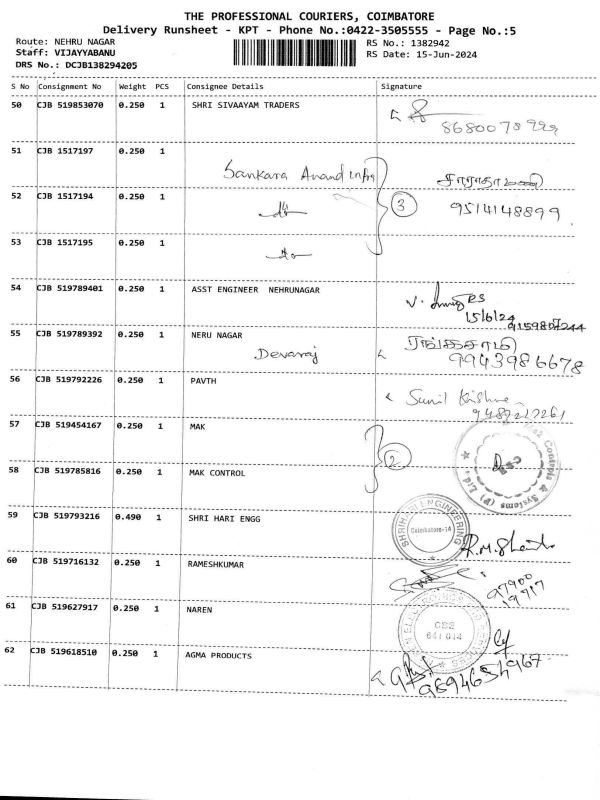 THE PROFESSIONAL COURIERS, COIMBATORE
Delivery Runsheet - KPT - Phone No.:0422-3505555 - Page No.:5
Route: NEHRU NAGAR RS No.: 1382942
Staff: VIJAYYABANU RS Date: 15-Jun-2024
DRS No.: DCJB138294205
S No Consignment No Weight PCS Consignee Details Signature
50 CJB 519853070 0.250 1 SHRI SIVAAYAM TRADERS
51 CJB 1517197 0.250 1
Sankara Anand Infra
52 CJB 1517194 0.250 1 3 9514148899
53 CJB 1517195 0.250 1
54 CJB 519789401 0.250 1 ASST ENGINEER NEHRUNAGAR
15/6/24
55 CJB 519789392 0.250 1 NERU NAGAR
Devaraj 9943986678
56 CJB 519792226 0.250 1 PAVTH
Sunil Krishna
57 CJB 519454167 0.250 1 MAK
2
58 CJB 519785816 0.250 1 MAK CONTROL
59 CJB 519793216 0.490 1 SHRI HARI ENGG
SHRI HARI ENGINEERING
Coimbatore-14
60 CJB 519716132 0.250 1 RAMESHKUMAR
97900
19917
61 CJB 519627917 0.250 1 NAREN
CBE
641 014
62 CJB 519618510 0.250 1 AGMA PRODUCTS